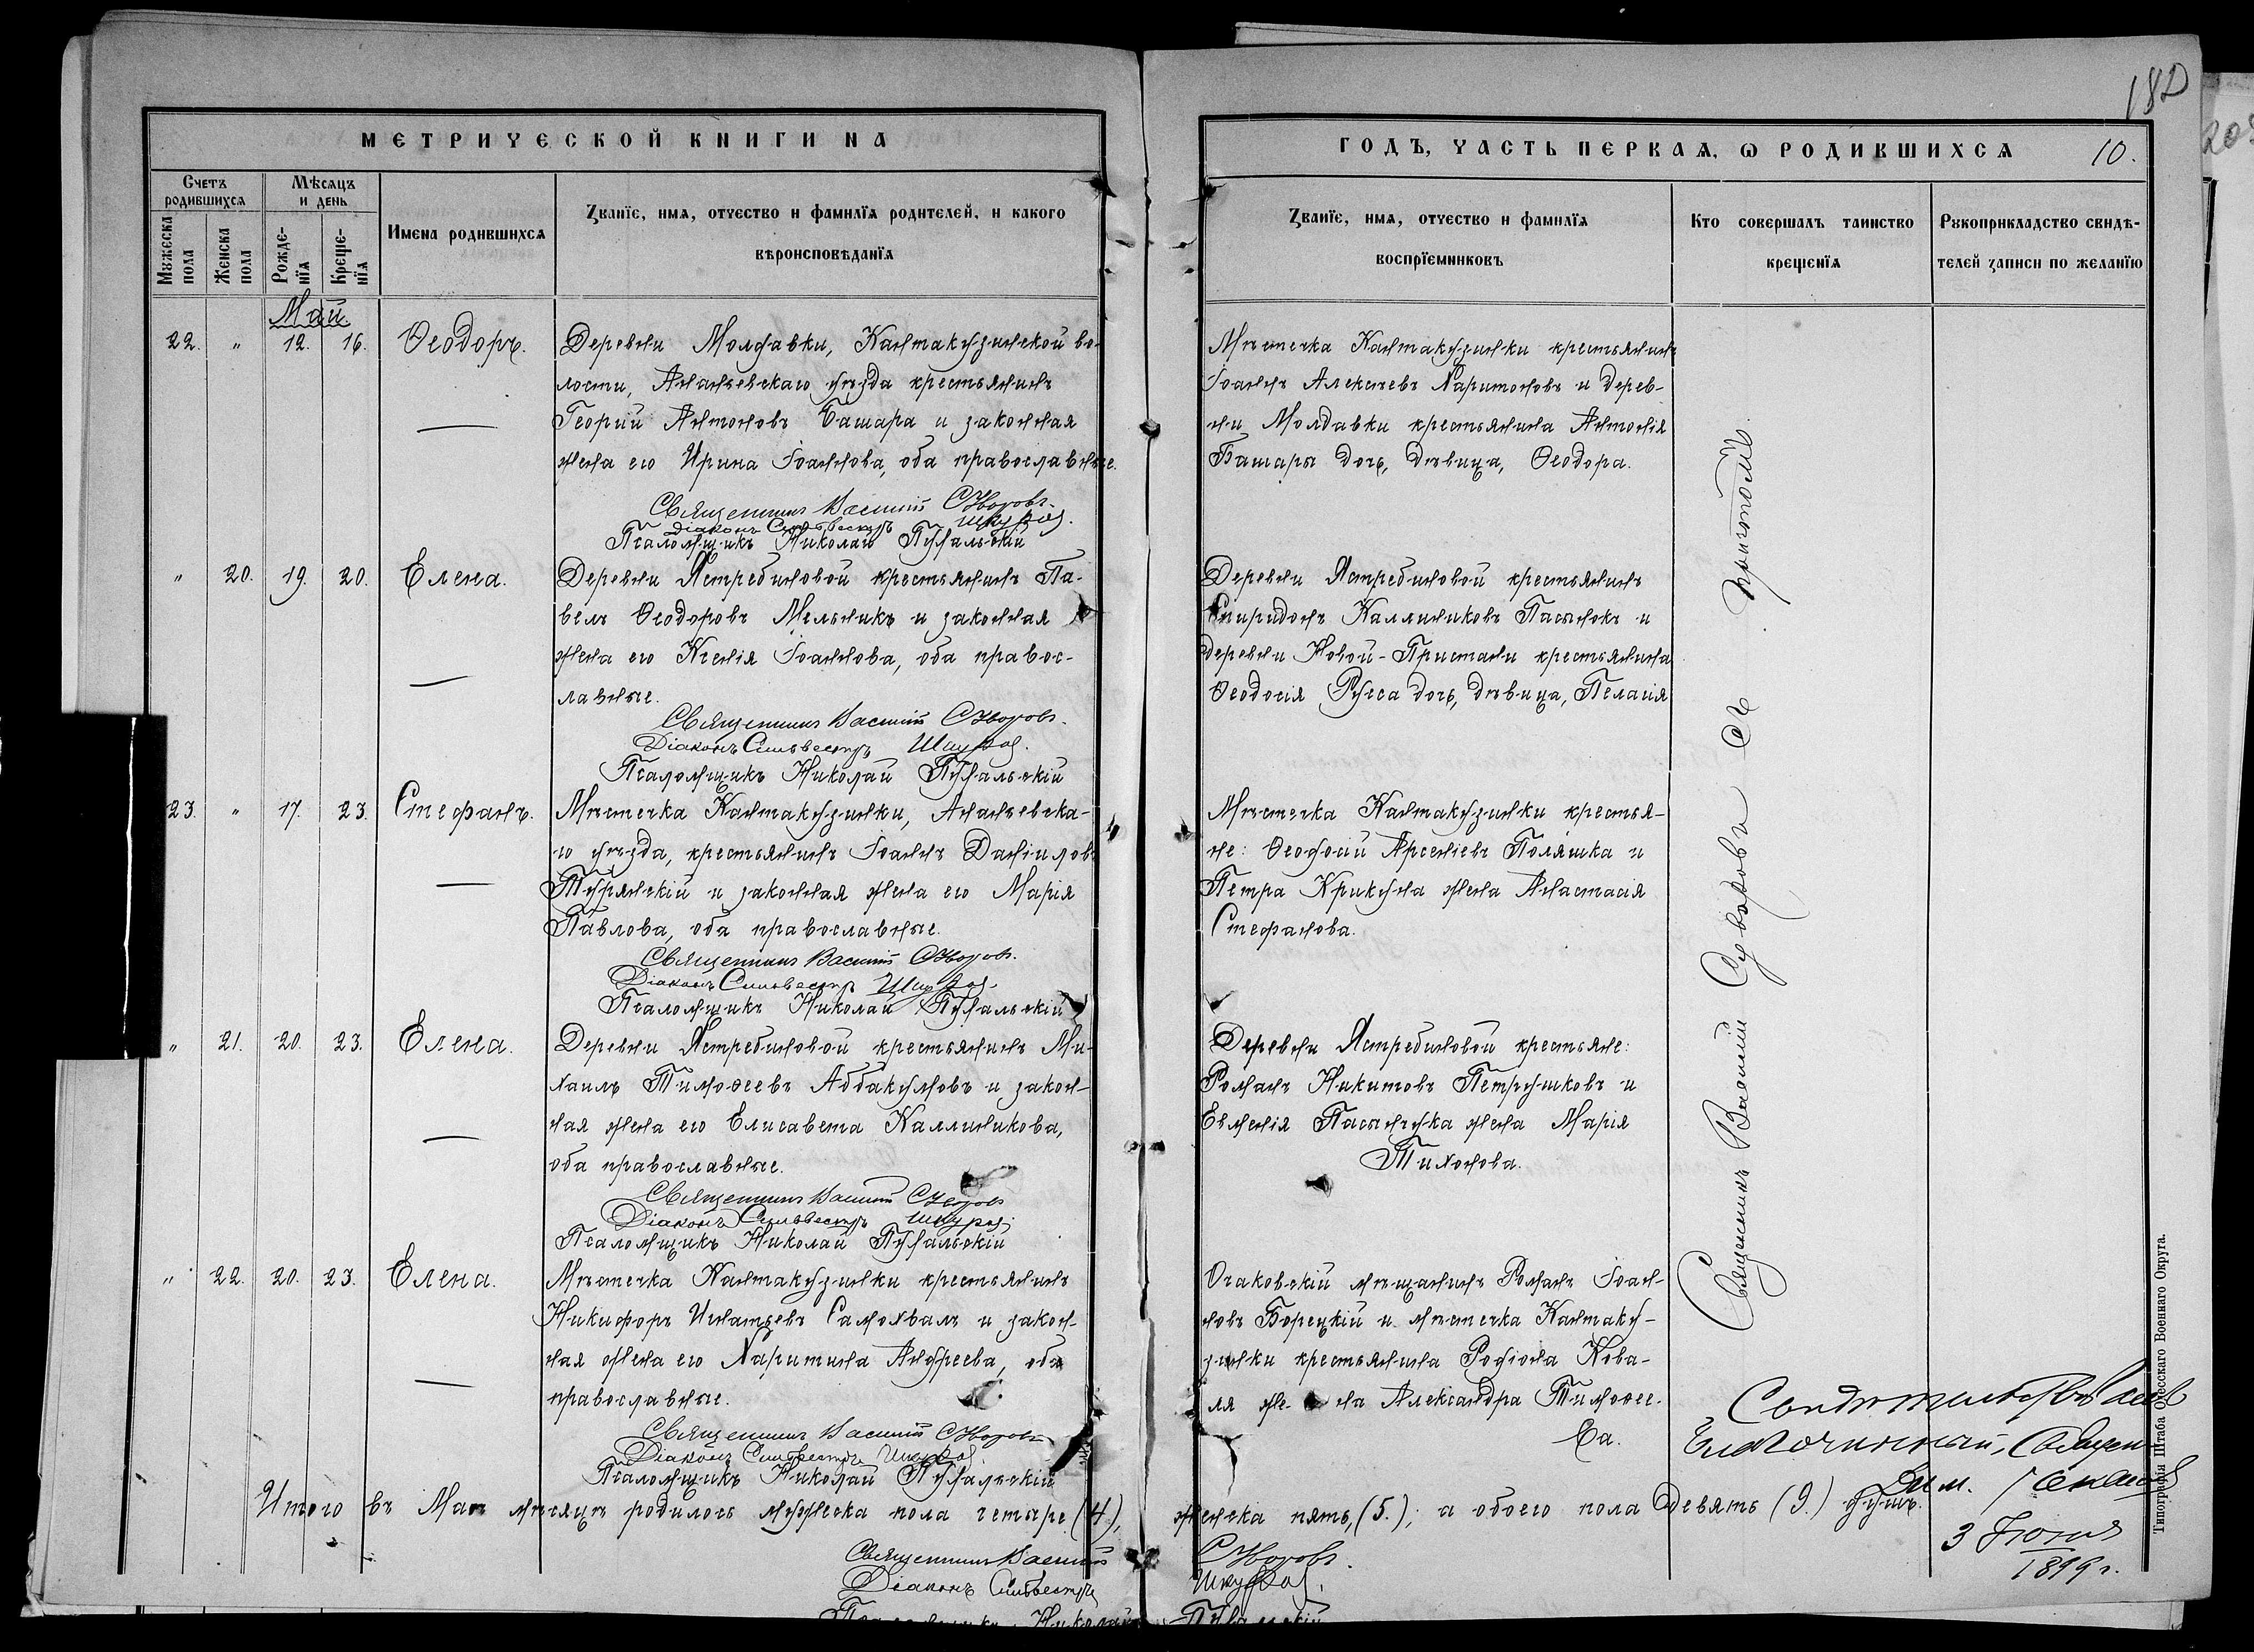 182
МЕТРИЧЕСКОЙ КНИГИ НА
ГОДЪ, ЧАСТЬ ПЕРВАЯ, Ѡ РОДИВШИХСЯ
10.
Счетъ родившихся
Мѣсяцъ и день
Мужеска пола
Женска пола
Рожденїя
Крещенїя
Имена родившихся
Званїе, имя, отчество и фамилїя родителей, и какого
вѣроисповѣданїя
Званїе, имя, отчество и фамилїя
воспрїемниковъ
Кто совершалъ таинство
крещенїя
Рукоприкладство свидѣ-
телей записи по желанїю
Май.
22. " 12. 16. Ѳеодоръ.
Деревни Молдавки, Кантакузинской во-
лости, Ананьевскаго уѣзда крестьянинъ
Георгий Антоновъ Башара и законная
жена его Ирина Іоаннова, оба православные.
Священникъ Василий Суворовъ.
Діаконъ Сильвестръ
Псаломщикъ Николай
Мѣстечка Кантакузинки крестьянинъ
Іоаннъ Алексѣевъ Харитоновъ и дерев-
ни Молдавки крестьянина Антонія
Башары дочь, дѣвица, Ѳеодора.
" 20. 19. 20. Елена.
Деревни Ястребиновой крестьянинъ Па-
велъ Ѳеодоровъ Мельникъ и законная
жена его Ксенія Іоаннова, оба правос-
лавные.
Священникъ Василий Суворовъ.
Діаконъ Сильвестръ
Псаломщикъ Николай
Деревни Ястребиновой крестьянинъ
Спиридонъ Каллиниковъ Пасынокъ и
деревни Новой-Пристани крестьянина
Ѳеодосія Руса дочь, дѣвица, Пелагія
23. " 17. 23. Стефанъ.
Мѣстечка Кантакузинки, Ананьевска-
го уѣзда, крестьянинъ Іоаннъ Даніиловъ
Турянскій и законная жена его Марія
Павлова, оба православные.
Священникъ Василий Суворовъ.
Діаконъ Сильвестръ
Псаломщикъ Николай
Мѣстечка Кантакузинки крестья-
не: Ѳеодосій Арсеніевъ Поляшка и
Петра Крикуна жена Анастасія
Стефанова.
" 21. 20. 23. Елена.
Деревни Ястребиновой крестьянинъ Ми-
хаилъ Тимоѳеевъ Аббакумовъ и закон-
ная жена его Елисавета Каллиникова,
оба православные.
Священникъ Василий Суворовъ
Діаконъ Сильвестръ
Псаломщикъ Николай
Деревни Ястребиновой крестьяне:
Романъ Никитовъ Петрушковъ и
Евменія Пасынчука жена Марія
Тихонова.
" 22. 20. 23. Елена.
Мѣстечка Кантакузинки крестьянинъ
Никифоръ Игнатьевъ Самохвалъ и закон-
ная жена его Харитина Андреева, оба
православные.
Священникъ Василий Суворовъ
Діаконъ Сильвестръ
Псаломщикъ Николай
Очаковскій мѣщанинъ Романъ Іоан-
новъ Борецкій и мѣстечка Кантаку-
зинки крестьянина Родіона Кова-
ля жена Александра Тимоѳее-
ва.
Священникъ Василий Суворовъ съ причтомъ.
Итого въ Маѣ мѣсяцѣ родилось мужеска пола четыре (4),
женска пять, (5.); а обоего пола девять (9.) душъ.
Священникъ Василий Суворовъ.
Діаконъ Сильвестръ
Николай
Свидѣтельствовалъ
Благочинный, Священ.
3 Іюня
1899 г.
Типографія Штаба Одесскаго Военнаго Округа.